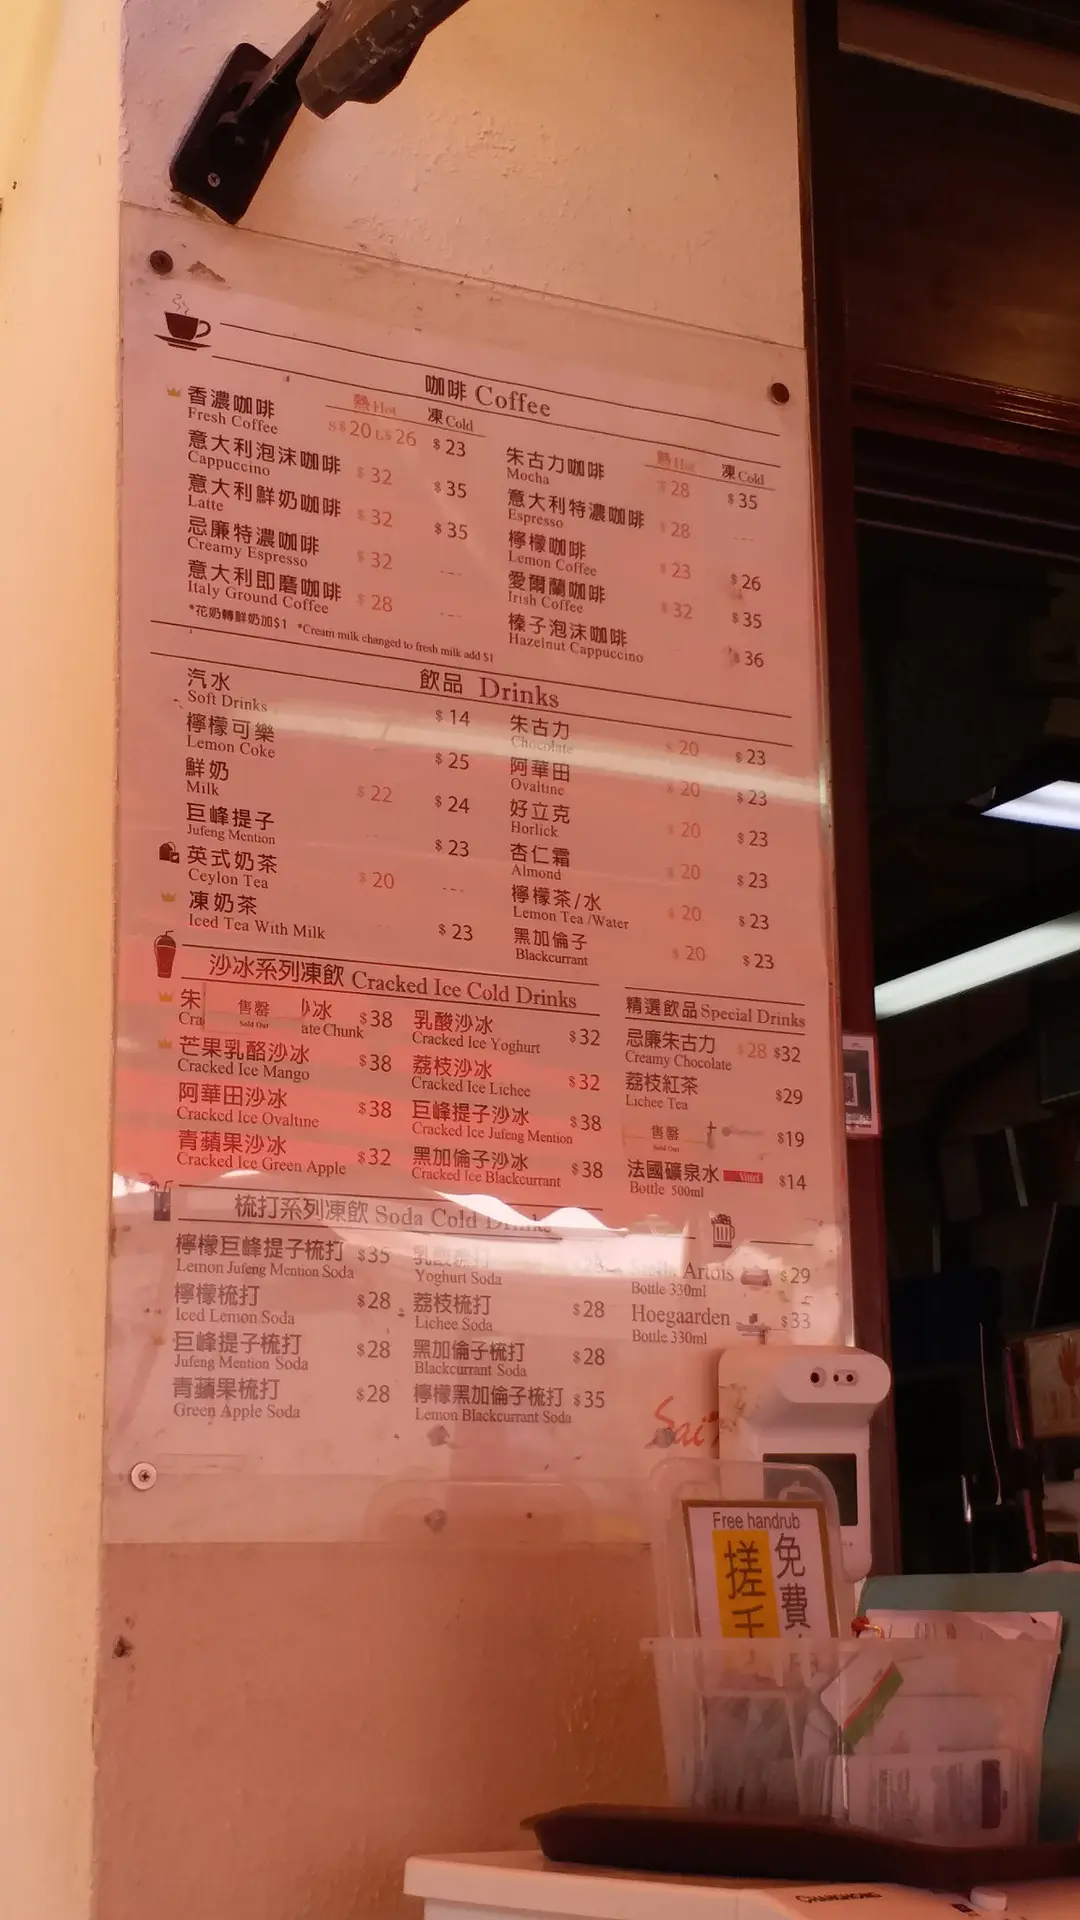 咖啡 Coffee
熱Hot 凍Cold
香濃咖啡 S$20 L$26 $23
Fresh Coffee
意大利泡沫咖啡 $32 $35
Cappuccino
意大利鮮奶咖啡 $32 $35
Latte
忌廉特濃咖啡 $32 ---
Creamy Espresso
意大利即磨咖啡 $28 ---
Italy Ground Coffee
*花奶轉鮮奶加$1 *Cream milk changed to fresh milk add $1
熱Hot 凍Cold
朱古力咖啡 $28 $35
Mocha
意大利特濃咖啡 $28 ---
Espresso
檸檬咖啡 $23 $26
Lemon Coffee
愛爾蘭咖啡 $32 $35
Irish Coffee
榛子泡沫咖啡 $36
Hazelnut Cappuccino
飲品 Drinks
汽水 $14
Soft Drinks
檸檬可樂 $25
Lemon Coke
鮮奶 $22 $24
Milk
巨峰提子 $23
Jufeng Mention
英式奶茶 $20 ---
Ceylon Tea
凍奶茶 $23
Iced Tea With Milk
朱古力 $20 $23
Chocolate
阿華田 $20 $23
Ovaltine
好立克 $20 $23
Horlick
杏仁霜 $20 $23
Almond
檸檬茶/水 $20 $23
Lemon Tea /Water
黑加倫子 $20 $23
Blackcurrant
沙冰系列凍飲 Cracked Ice Cold Drinks
朱 售罄 沙冰 $38
Cra Sold Out ate Chunk
芒果乳酪沙冰 $38
Cracked Ice Mango
阿華田沙冰 $38
Cracked Ice Ovaltine
青蘋果沙冰 $32
Cracked Ice Green Apple
乳酸沙冰 $32
Cracked Ice Yoghurt
荔枝沙冰 $32
Cracked Ice Lichee
巨峰提子沙冰 $38
Cracked Ice Jufeng Mention
黑加倫子沙冰 $38
Cracked Ice Blackcurrant
精選飲品 Special Drinks
忌廉朱古力 $28 $32
Creamy Chocolate
荔枝紅茶 $29
Lichee Tea
售罄 $19
Sold Out
法國礦泉水 $14
Bottle 500ml
梳打系列凍飲 Soda Cold Drinks
檸檬巨峰提子梳打 $35
Lemon Jufeng Mention Soda
檸檬梳打 $28
Iced Lemon Soda
巨峰提子梳打 $28
Jufeng Mention Soda
青蘋果梳打 $28
Green Apple Soda
乳酸梳打 $28
Yoghurt Soda
荔枝梳打 $28
Lichee Soda
黑加倫子梳打 $28
Blackcurrant Soda
檸檬黑加倫子梳打 $35
Lemon Blackcurrant Soda
Stella Artois $29
Bottle 330ml
Hoegaarden $33
Bottle 330ml
Free handrub
免費
搓手
CHANGHONG